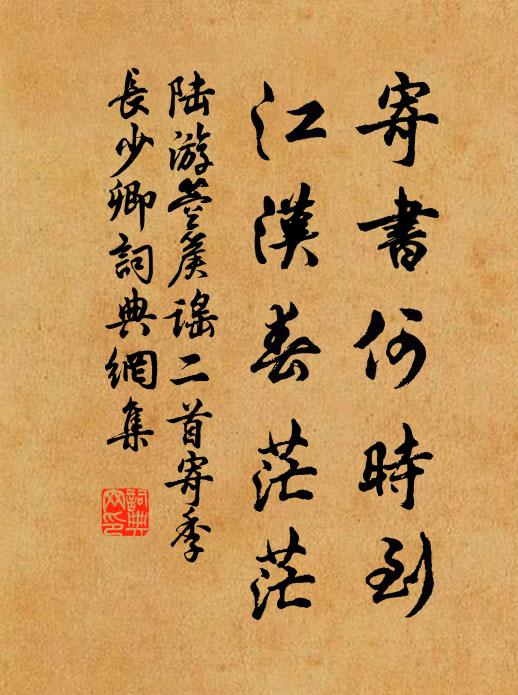 寄書何時到
江漢春茫茫
陸游箜篌謠二首寄季
長少卿詞典網集
詞典
网印